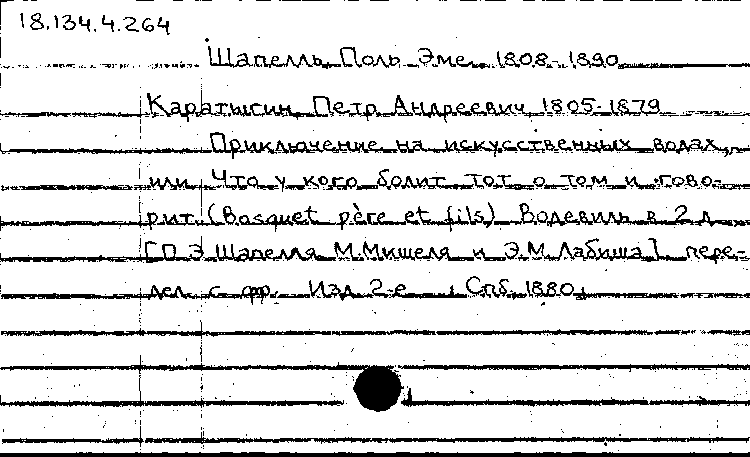 18.134.4.264
Шапелль, Поль Эме. 1808-1890
Каратыгин, Петр Андреевич 1805-1879
Приключение на искусственных водах,
или Что у кого болит тот о том и гово-
рит. (Bosquet père et fils) Водевиль в 2 д.
[П.Э Шапелля М.Мишеля и Э.М.Лабиша], пере-
дел. с фр. Изд 2-е Спб, 1880,